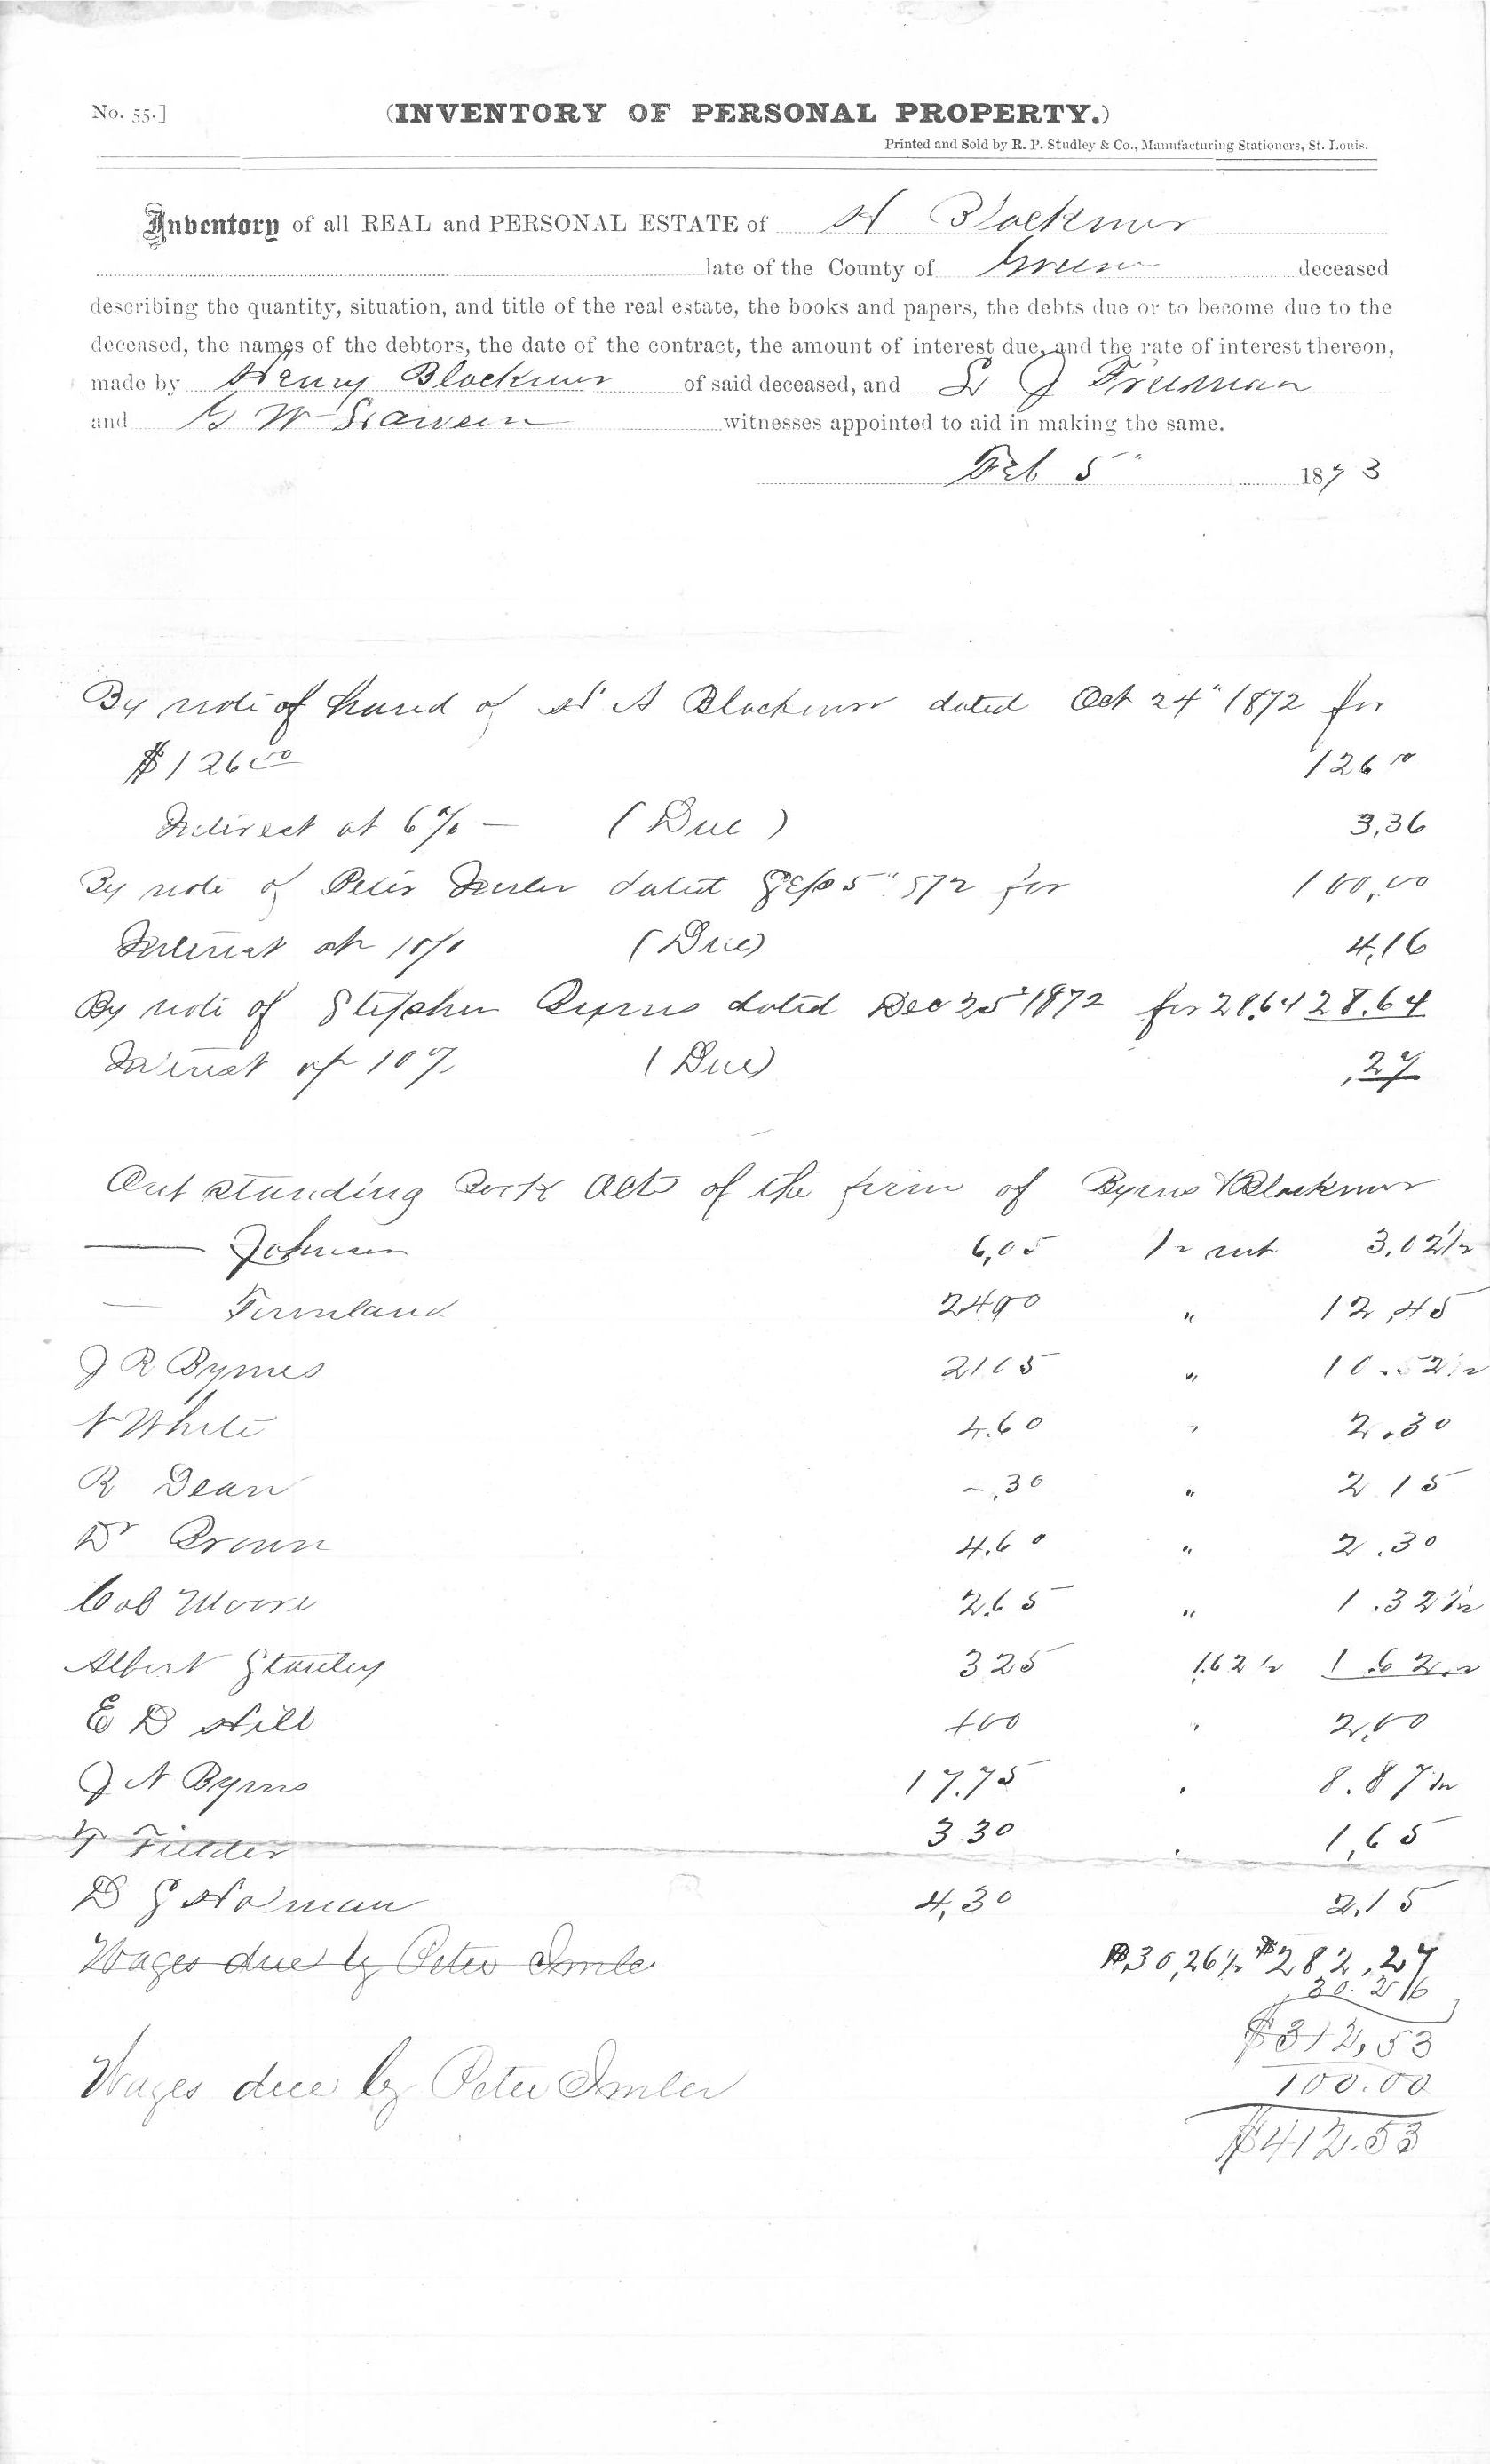 No. 55.]
(INVENTORY OF PERSONAL PROPERTY.)
Printed and Sold by R. P. Studley & Co., Manufacturing Stationers, St. Louis.
Inventory of all REAL and PERSONAL ESTATE of H Blackmor
late of the County of Greene deceased
describing the quantity, situation, and title of the real estate, the books and papers, the debts due or to become due to the
deceased, the names of the debtors, the date of the contract, the amount of interest due, and the rate of interest thereon,
made by Henry Blackmor of said deceased, and J Freeman
and G W witnesses appointed to aid in making the same.
Feb 5" 1873
By note of hand of H A Blackmor dated Oct 24" 1872 for
$126 00 126 00
Interest at 6% — (Due) 3,36
By note of Peter Imler dated Sep 5" 872 for 100,00
Interest at 10% (Due) 4,16
By note of Stephen Byrns dated Dec 25" 1872 for 28.64 28.64
Interest at 10% (Due) ,27
Out standing Book Acts of the firm of Byrns & Blackmor
— Johnson 6,05 1/2 int 3.02 1/2
— 24 90 " 12,45
J R Byrnes 21 05 " 10.52 1/2
White 4.60 " 2.30
R Dean -.30 " 2 15
Dr Brown 4.60 " 2.30
Cob Moore 2.65 " 1.32 1/2
Albert Stanley 3 25 1.62 1/2 1.62 1/2
E D Hill 400 " 2,00
J N Byrns 17.75 " 8.87 1/2
T Fielder 3 30 " 1,65
D G Holman 4,30 2,15
Wages due by Peter Imle $30,26 1/2 $282,27
30.26
$312,53
Wages due by Peter Imler 100.00
$412.53